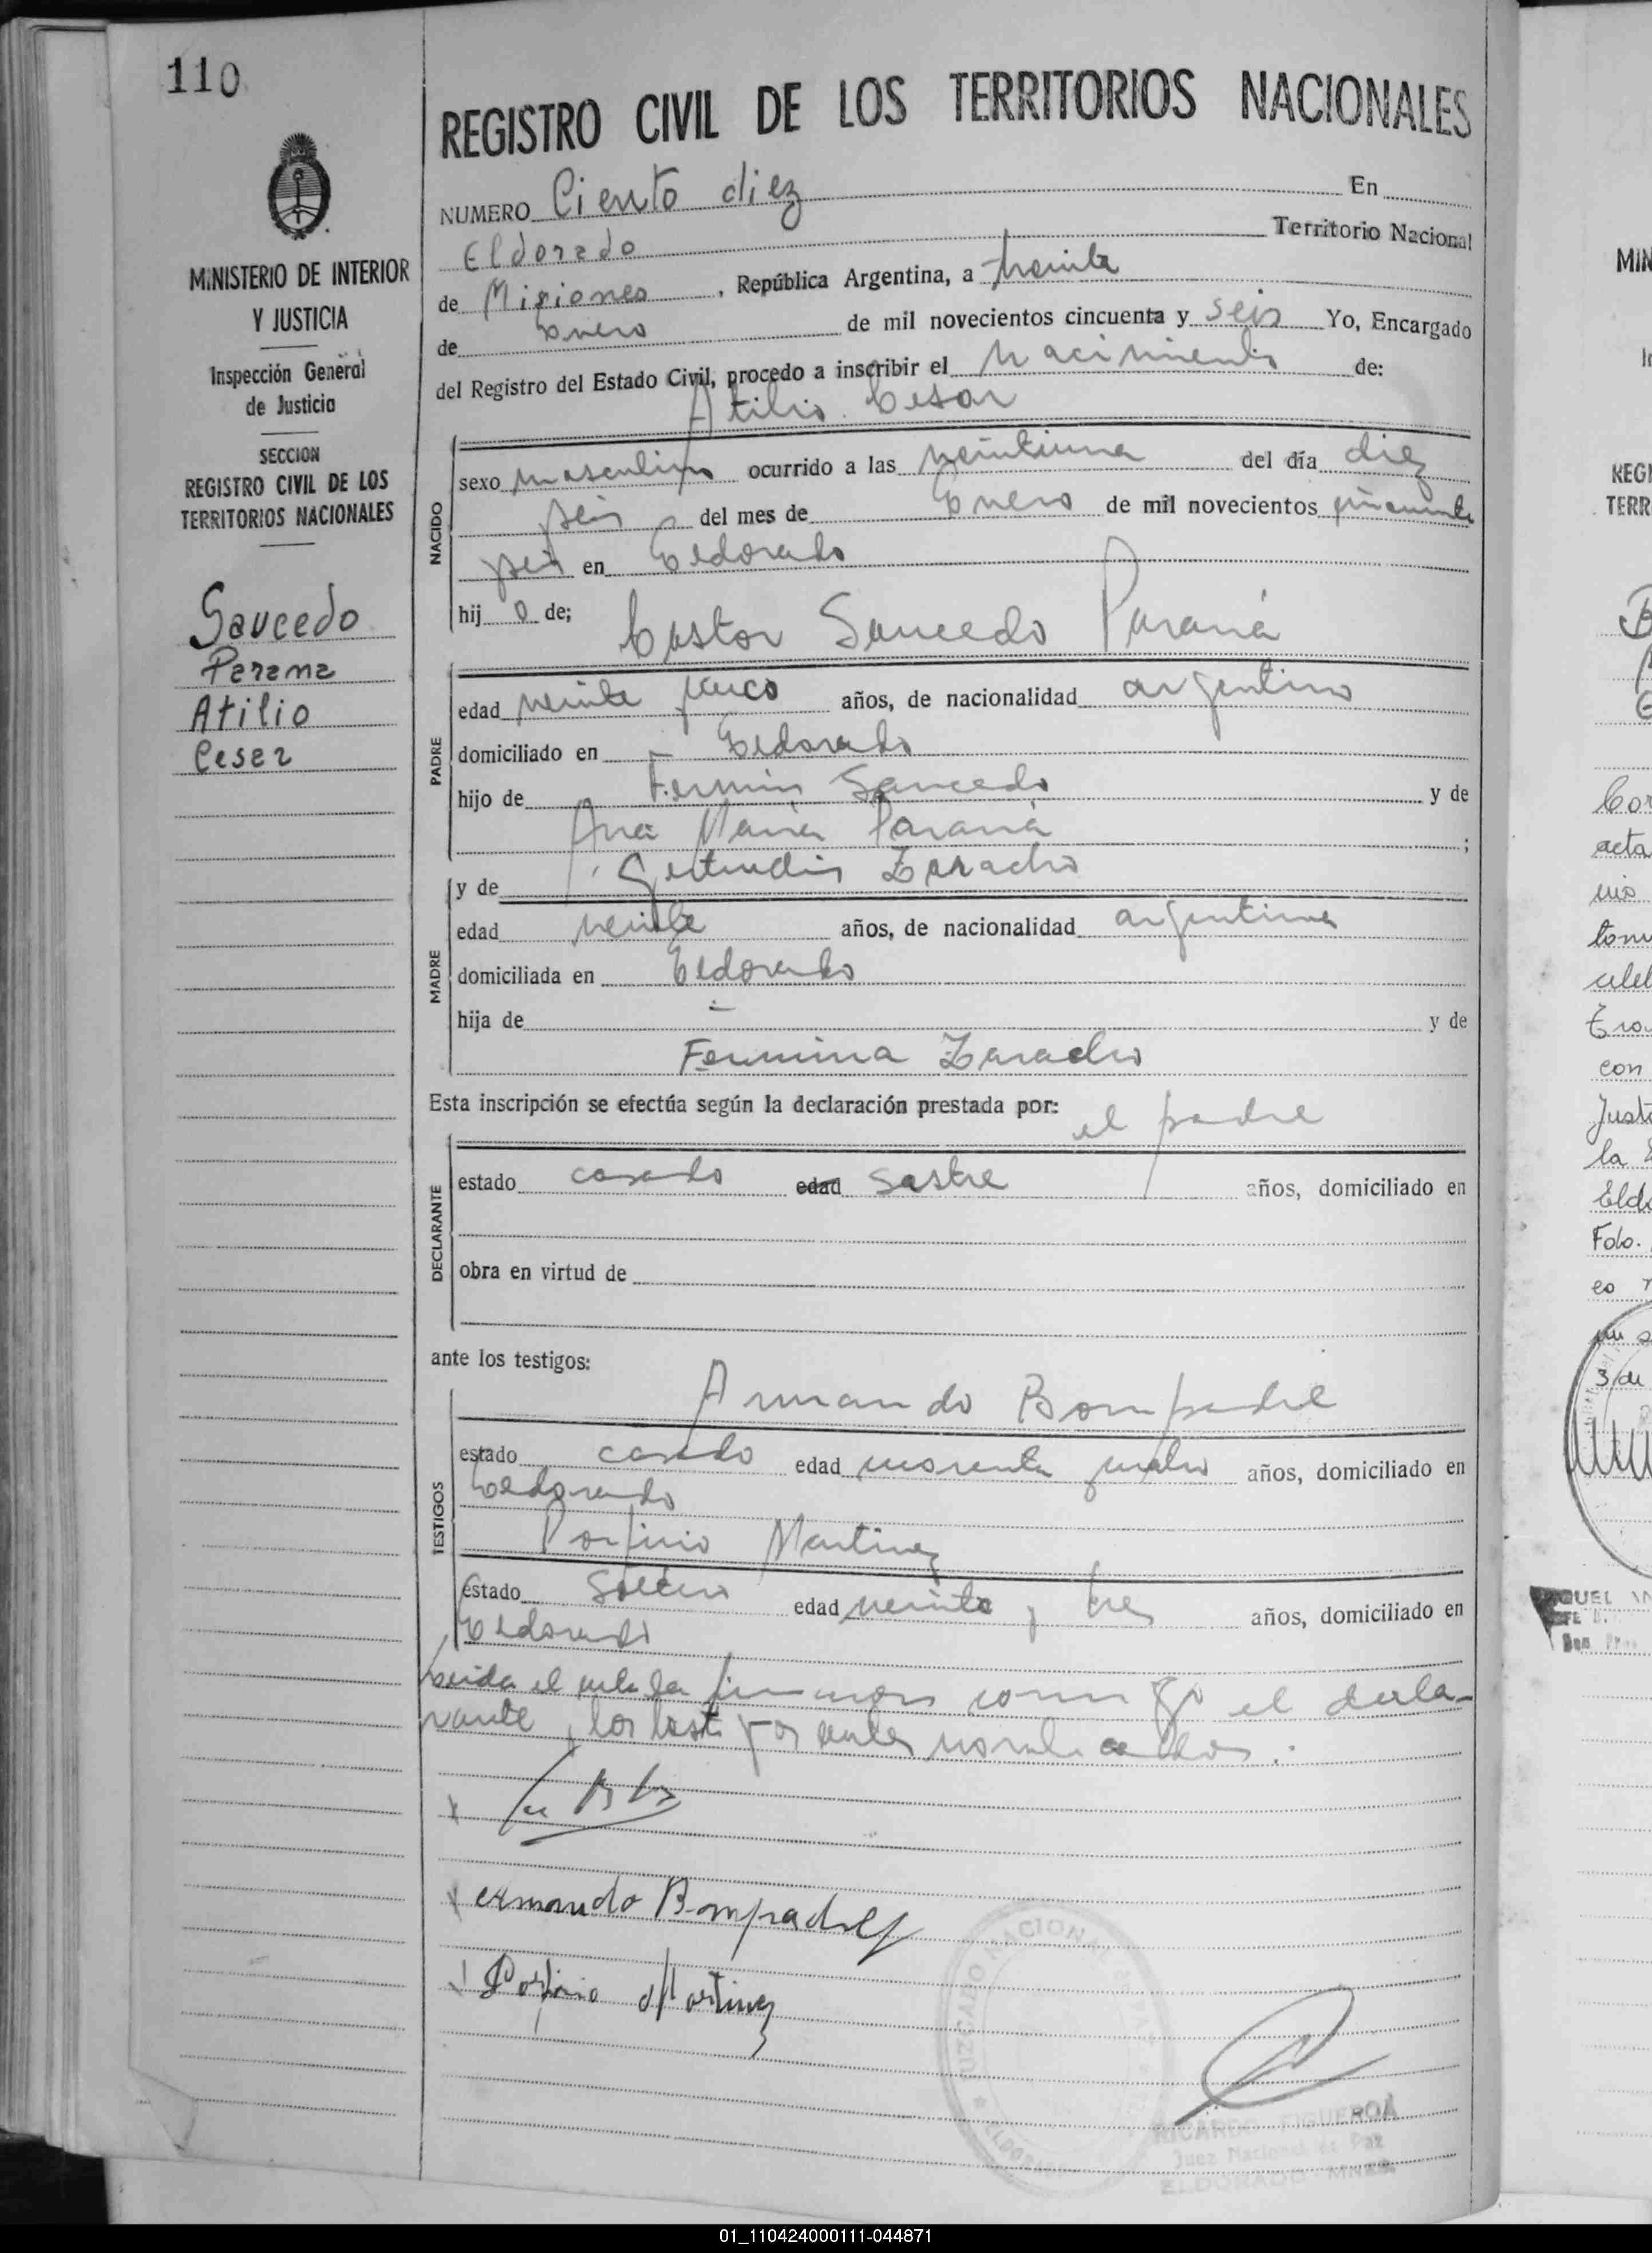 110
MINISTERIO DE INTERIOR
Y JUSTICIA
Inspección General
de Justicia
SECCION
REGISTRO CIVIL DE LOS
TERRITORIOS NACIONALES
Saucedo
Parana
Atilio
Cesar
REGISTRO CIVIL DE LOS TERRITORIOS NACIONALES
NUMERO Ciento diez En
Eldorado Territorio Nacional
de Misiones, República Argentina, a treinta
de Enero de mil novecientos cincuenta y seis Yo, Encargado
del Registro del Estado Civil, procedo a inscribir el nacimiento de:
Atilio Cesar
NACIDO
sexo masculino ocurrido a las veintiuna del día diez
seis del mes de Enero de mil novecientos cincuenta
seis en Eldorado
hijo de; Castor Saucedo Paraná
PADRE
edad veinte cinco años, de nacionalidad argentino
domiciliado en Eldorado
hijo de Fermin Saucedo y de
Ana Maria Paraná ;
y de Gertrudis Zaracho
MADRE
edad veinte años, de nacionalidad argentina
domiciliada en Eldorado
hija de - y de
Fermina Zaracho
Esta inscripción se efectúa según la declaración prestada por: el padre
DECLARANTE
estado casado edad sastre años, domiciliado en
obra en virtud de
ante los testigos:
Armando Bompadre
TESTIGOS
estado casado edad cuarenta cuatro años, domiciliado en
Eldorado
Porfirio Martinez
estado soltero edad veinte y tres años, domiciliado en
Eldorado
Leida el acta la firmaron conmigo el decla-
rante, los testigos antes nombrados.
Armando Bompadre
Porfirio Martinez
JUZGADO NACIONAL DE PAZ
ELDORADO
RICARDO FIGUEROA
Juez Nacional de Paz
ELDORADO - MNES.
MIN
REGI
TERR
acta
con
la
Foto.
3 de
01_110424000111-044871